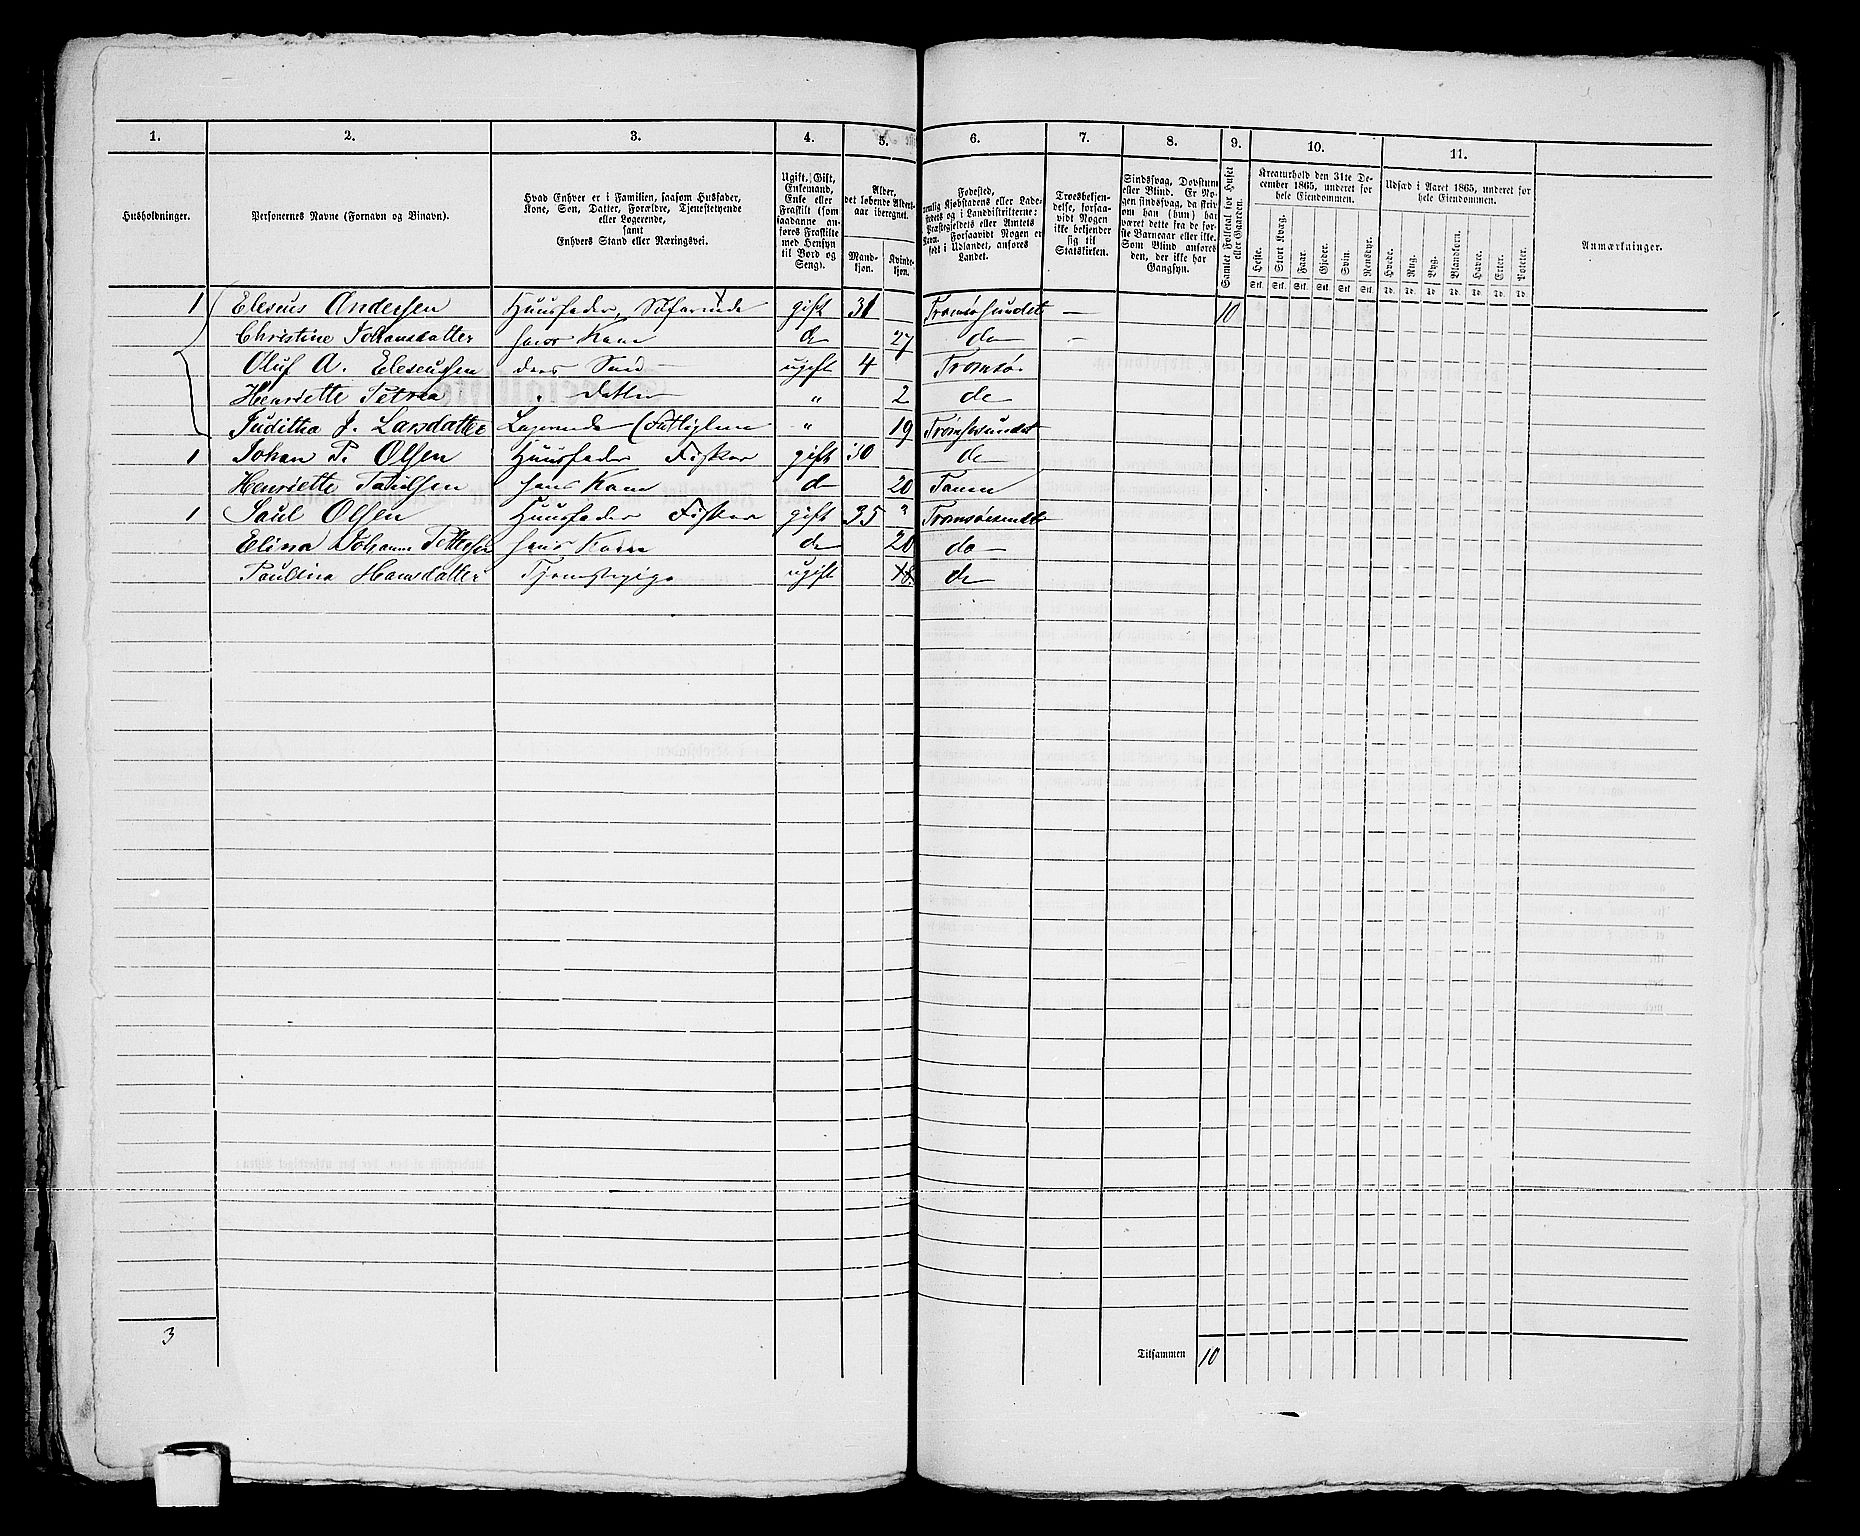 1. 2. 3. 4. 5. 6. 7. 8. 9. 10. 11.
Husholdninger.
Personernes Navne (Fornavn og Binavn).
Hvad Enhver er i Familien, saasom Husfader,
Kone, Søn, Datter, Forældre, Tjenestetyende
eller Logerende,
samt
Enhvers Stand eller Næringsvei.
Ugift, Gift,
Enkemand,
Enke eller
Fraskilt (som
saadanne an-
føres Fraskilte
med Hensyn
til Bord og
Seng).
Alder,
det løbende Alders-
aar iberegnet.
Mand-
kjøn.
Kvinde-
kjøn.
Fødested,
nemlig Kjøbstadens eller Lade-
stedets og i Landdistrikterne:
Præstegjeldets eller Amtets
Navn. Forsaavidt Nogen er
født i Udlandet, anføres
Landet.
Troesbekjen-
delse, forsaa-
vidt Nogen
ikke bekjender
sig til
Statskirken.
Sindssvag, Døvstum
eller Blind. Er No-
gen sindssvag, da skriv
om han (hun) har
været dette fra de før-
ste Barneaar eller ikke.
Som Blind anføres
den, der ikke har
Gangsyn.
Samlet Folketal for Huset
eller Gaarden.
Kreaturhold den 31te De-
cember 1865, underet for
hele Eiendommen.
Heste. Stort Kvæg. Faar. Gjeder. Svin. Rensdyr.
Stk. Stk. Stk. Stk. Stk. Stk.
Udsæd i Aaret 1865, underet for
hele Eiendommen.
Hvede. Rug. Byg. Blandkorn. Havre. Erter. Poteter.
Td. Td. Td. Td. Td. Td. Td.
Anmærkninger.
1 Eleseus Andersen Huusfader, Søfarende gift 31 Tromsøsundet — 10
Christine Johansdatter hans Kone do 27 do -
Oluf A. Eleseussen deres Søn ugift 4 Tromsø
Henriette Petrea " Datter " 2 do
Juditha J. Larsdatter Logerende " 19 Tromsøsundet
1 Johan P. Olsen Huusfader Fisker gift 30 do
Henriette Paulsen hans Kone do 20 Tanen
1 Paul Olsen Huusfader Fisker gift 35 " Tromsøesundet
Elina Johanne Pettersen hans Kone do 20 do
Paulina Hansdatter Tjenestepige ugift 18 do
3
Tilsammen 10